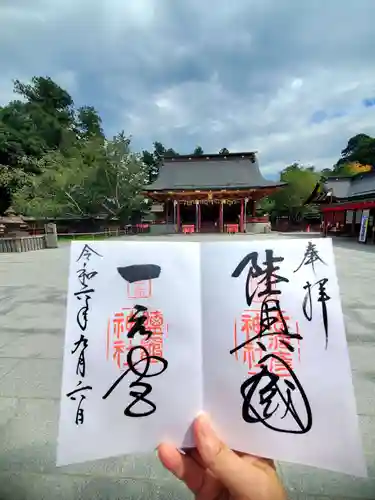 奉拝
陸奥國
志波彦
神社
一之宮
鹽竈
神社
令和六年九月六日